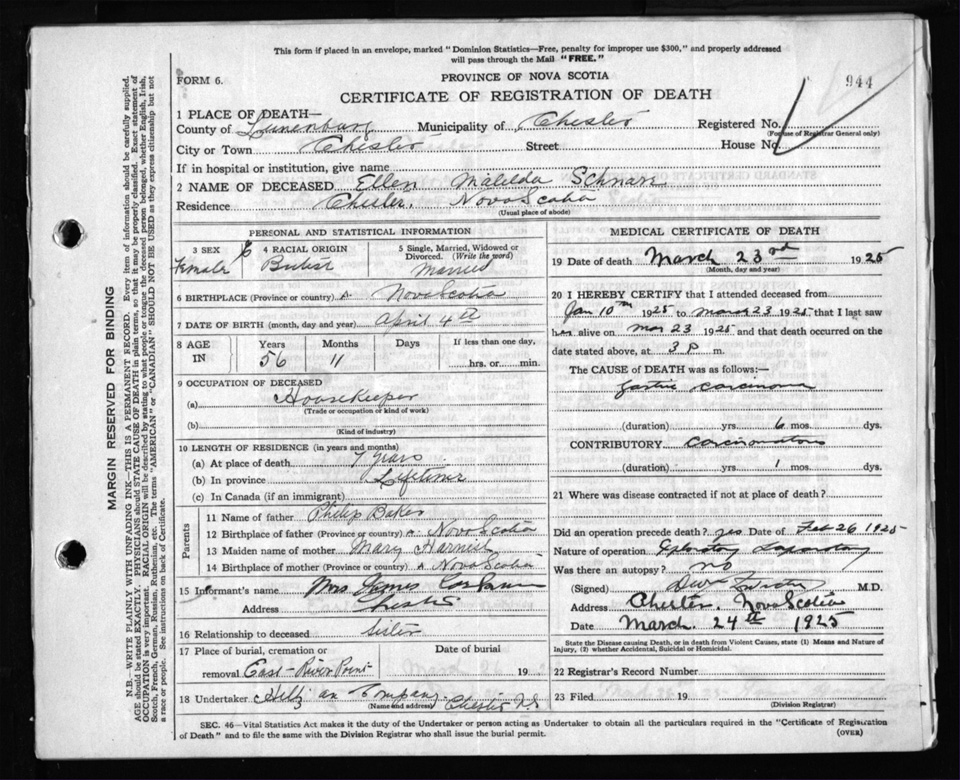 This form if placed in an envelope, marked "Dominion Statistics—Free, penalty for improper use $300," and properly addressed
will pass through the Mail "FREE."
FORM 6.
PROVINCE OF NOVA SCOTIA
944
CERTIFICATE OF REGISTRATION OF DEATH
1 PLACE OF DEATH—
County of Lunenburg Municipality of Chester Registered No.
(For use of Registrar General only)
City or Town Chester Street House No.
If in hospital or institution, give name
2 NAME OF DECEASED Ellen Matilda Schnare
Residence Chester, Nova Scotia
(Usual place of abode)
PERSONAL AND STATISTICAL INFORMATION
3 SEX Female
4 RACIAL ORIGIN
5 Single, Married, Widowed or Divorced. (Write the word) Married
6 BIRTHPLACE (Province or country) Nova Scotia
7 DATE OF BIRTH (month, day and year) April 4th
8 AGE IN Years Months Days If less than one day,
56 11 hrs. or min.
9 OCCUPATION OF DECEASED
(a) Housekeeper
(Trade or occupation or kind of work)
(b)
(Kind of industry)
10 LENGTH OF RESIDENCE (in years and months)
(a) At place of death years
(b) In province Lifetime
(c) In Canada (if an immigrant)
Parents
11 Name of father Philip Baker
12 Birthplace of father (Province or country) Nova Scotia
13 Maiden name of mother Mary Harnish
14 Birthplace of mother (Province or country) Nova Scotia
15 Informant's name Mrs James
Address Chester
16 Relationship to deceased sister
17 Place of burial, cremation or removal East River Point Date of burial 19
18 Undertaker Company Chester N.S
(Name and address)
MEDICAL CERTIFICATE OF DEATH
19 Date of death March 23rd 1925
(Month, day and year)
20 I HEREBY CERTIFY that I attended deceased from
Jan 10th 1925 to March 23 1925 that I last saw
her alive on Mar 23 1925 and that death occurred on the
date stated above, at 3 P m.
The CAUSE of DEATH was as follows:—
gastric carcinoma
(duration) yrs. 6 mos. dys.
CONTRIBUTORY
(duration) yrs. 1 mos. dys.
21 Where was disease contracted if not at place of death?
Did an operation precede death? yes Date of Feb 26 1925
Nature of operation Exploratory Laparotomy
Was there an autopsy? no
(Signed) M.D.
Address Chester, Nova Scotia
Date March 24th 1925
State the Disease causing Death, or in death from Violent Causes, state (1) Means and Nature of
Injury, (2) whether Accidental, Suicidal or Homicidal.
22 Registrar's Record Number
23 Filed 19
(Division Registrar)
SEC. 46—Vital Statistics Act makes it the duty of the Undertaker or person acting as Undertaker to obtain all the particulars required in the "Certificate of Registration
of Death" and to file the same with the Division Registrar who shall issue the burial permit.
(OVER)
MARGIN RESERVED FOR BINDING
N.B.—WRITE PLAINLY WITH UNFADING INK—THIS IS A PERMANENT RECORD. Every item of information should be carefully supplied.
AGE should be stated EXACTLY. PHYSICIANS should STATE CAUSE OF DEATH in plain terms, so that it may be properly classified. Exact statement of
OCCUPATION is very important. RACIAL ORIGIN will be described by stating to what people or tongue the deceased person belonged, whether English, Irish,
Scotch, French, German, Russian, Ruthenian, etc. The terms "AMERICAN" or "CANADIAN" SHOULD NOT BE USED as they express citizenship but not
a race or people. See instructions on back of Certificate.